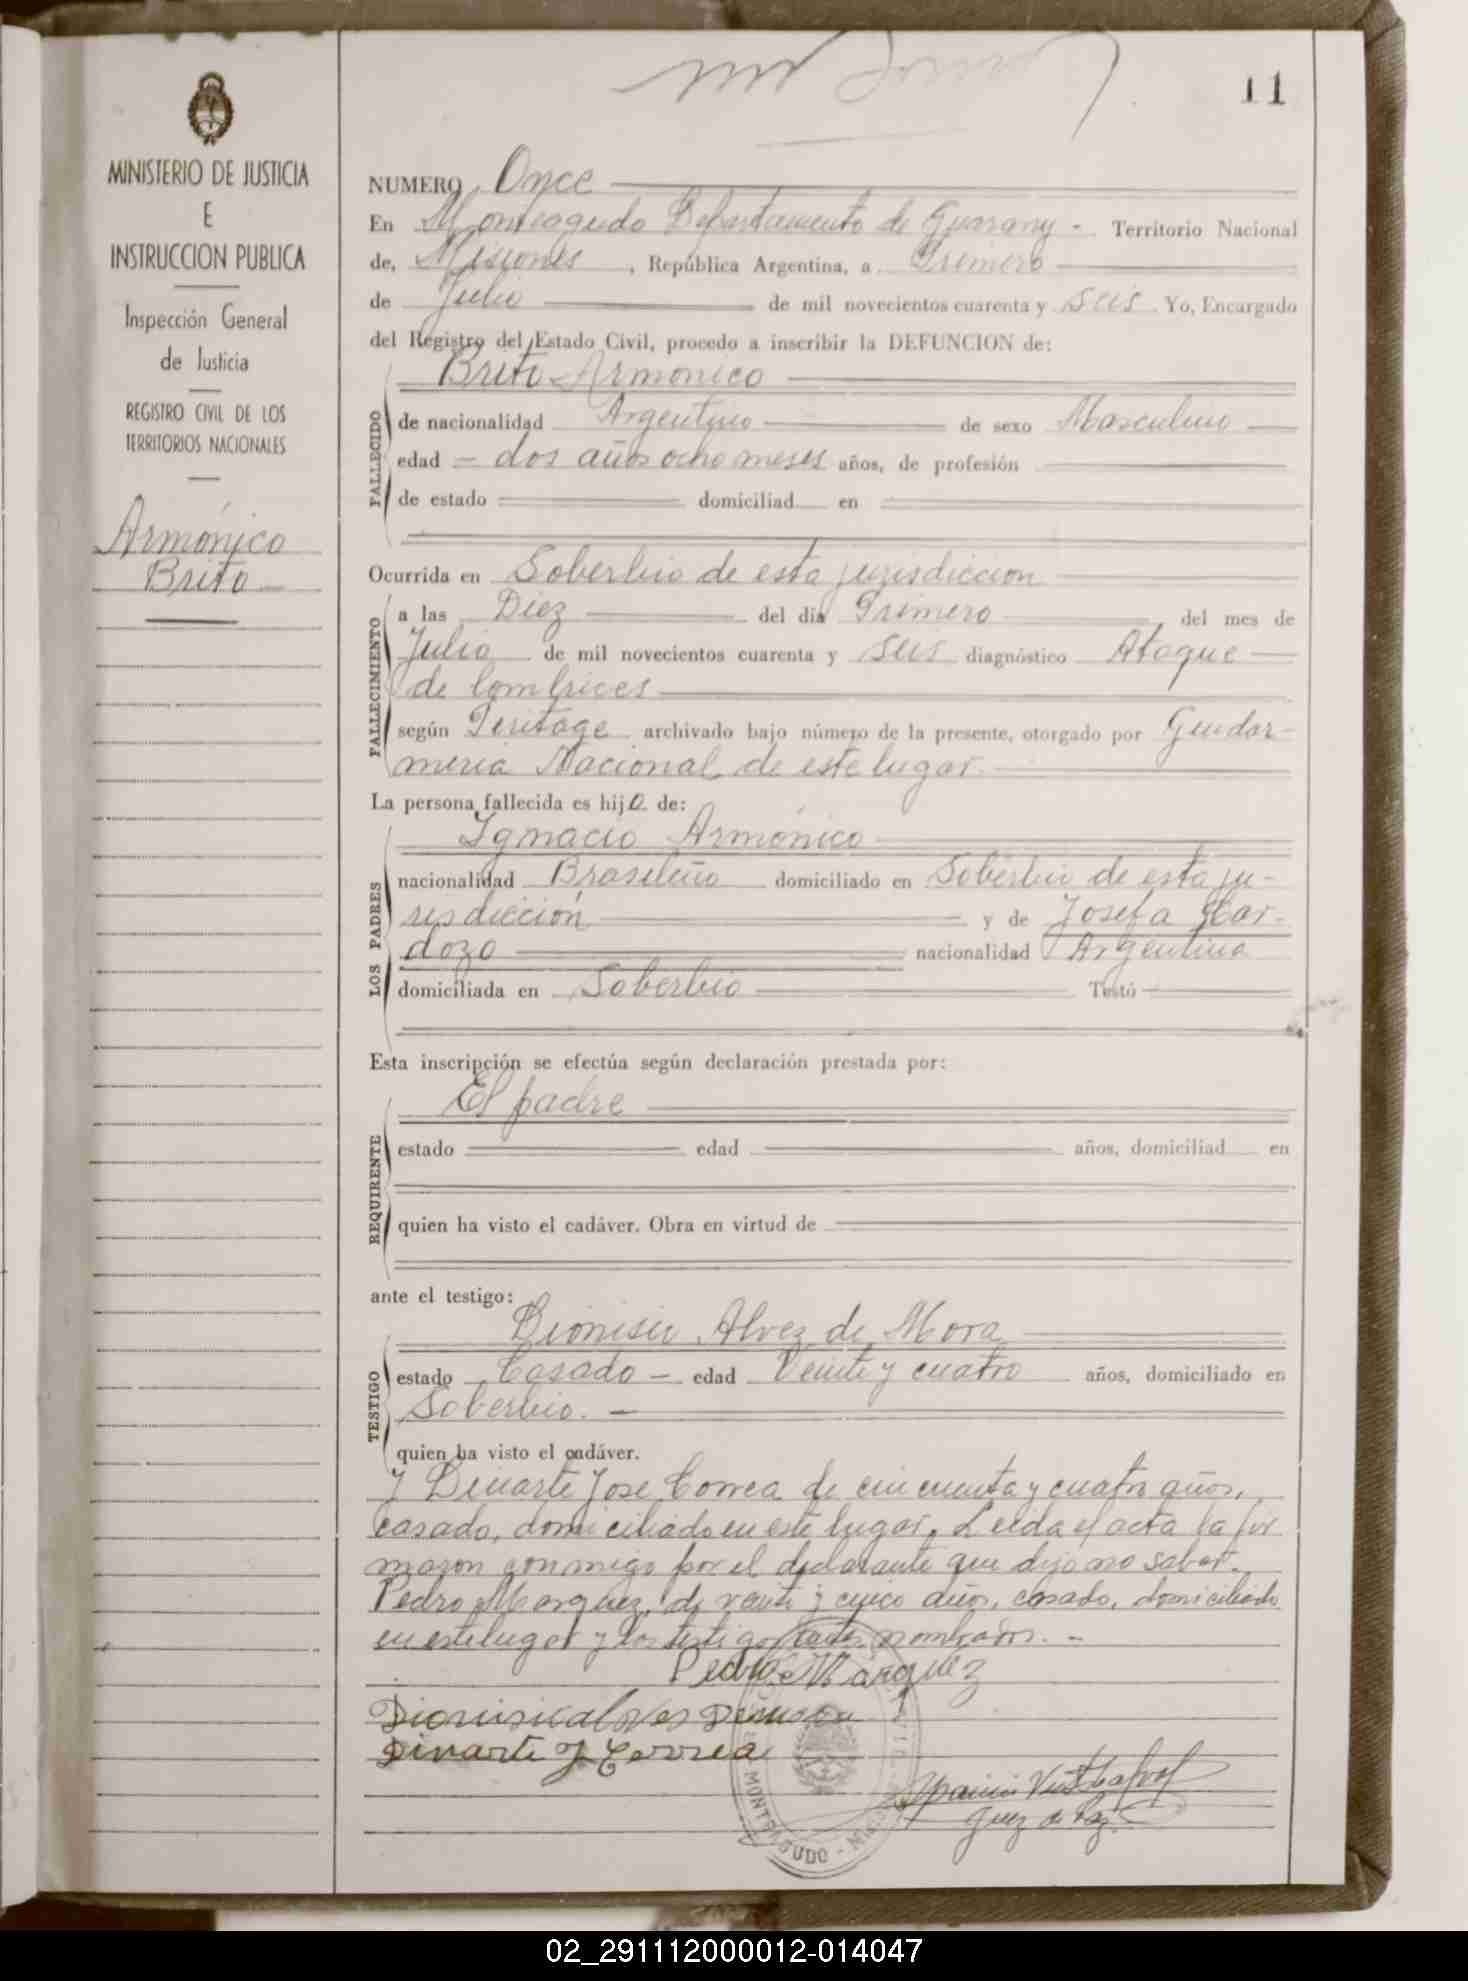 11
MINISTERIO DE JUSTICIA
E
INSTRUCCION PUBLICA
Inspección General
de Justicia
REGISTRO CIVIL DE LOS
TERRITORIOS NACIONALES
Armónico
Brito
NUMERO Once
En Monteagudo Departamento de Guarany - Territorio Nacional
de, Misiones, República Argentina, a Primero
de Julio de mil novecientos cuarenta y seis. Yo, Encargado
del Registro del Estado Civil, procedo a inscribir la DEFUNCION de:
Brito Armonico
FALLECIDO
de nacionalidad Argentino de sexo Masculino
edad - dos años ocho meses años, de profesión
de estado domiciliad en
Ocurrida en Soberbio de esta jurisdiccion
FALLECIMIENTO
a las Diez del día Primero del mes de
Julio de mil novecientos cuarenta y seis diagnóstico Ataque
de lombrices
según Peritage archivado bajo número de la presente, otorgado por Gendar-
meria Nacional de este lugar.
La persona fallecida es hijo de:
LOS PADRES
Ignacio Armónico
nacionalidad Brasileño domiciliado en Soberbio de esta ju-
risdicción y de Josefa Car-
dozo nacionalidad Argentina
domiciliada en Soberbio Testó
Esta inscripción se efectúa según declaración prestada por:
REQUIRENTE
El padre
estado edad años, domiciliad en
quien ha visto el cadáver. Obra en virtud de
ante el testigo:
TESTIGO
Dionisio Alvez de Mora
estado Casado - edad Veinte y cuatro años, domiciliado en
Soberbio. -
quien ha visto el cadáver.
Y Dinarte Jose Correa de cincuenta y cuatro años,
casado, domiciliado en este lugar. Leida el acta la fir
maron conmigo por el declarante que dijo no saber.
Pedro Marquez, de veinte y cinco años, casado, domiciliado
en este lugar y los testigos antes nombrados. -
Pedro Márquez
Dionisio alves Demora
Dinarte J Correa
Juez de Paz
MONTEAGUDO
02_291112000012-014047